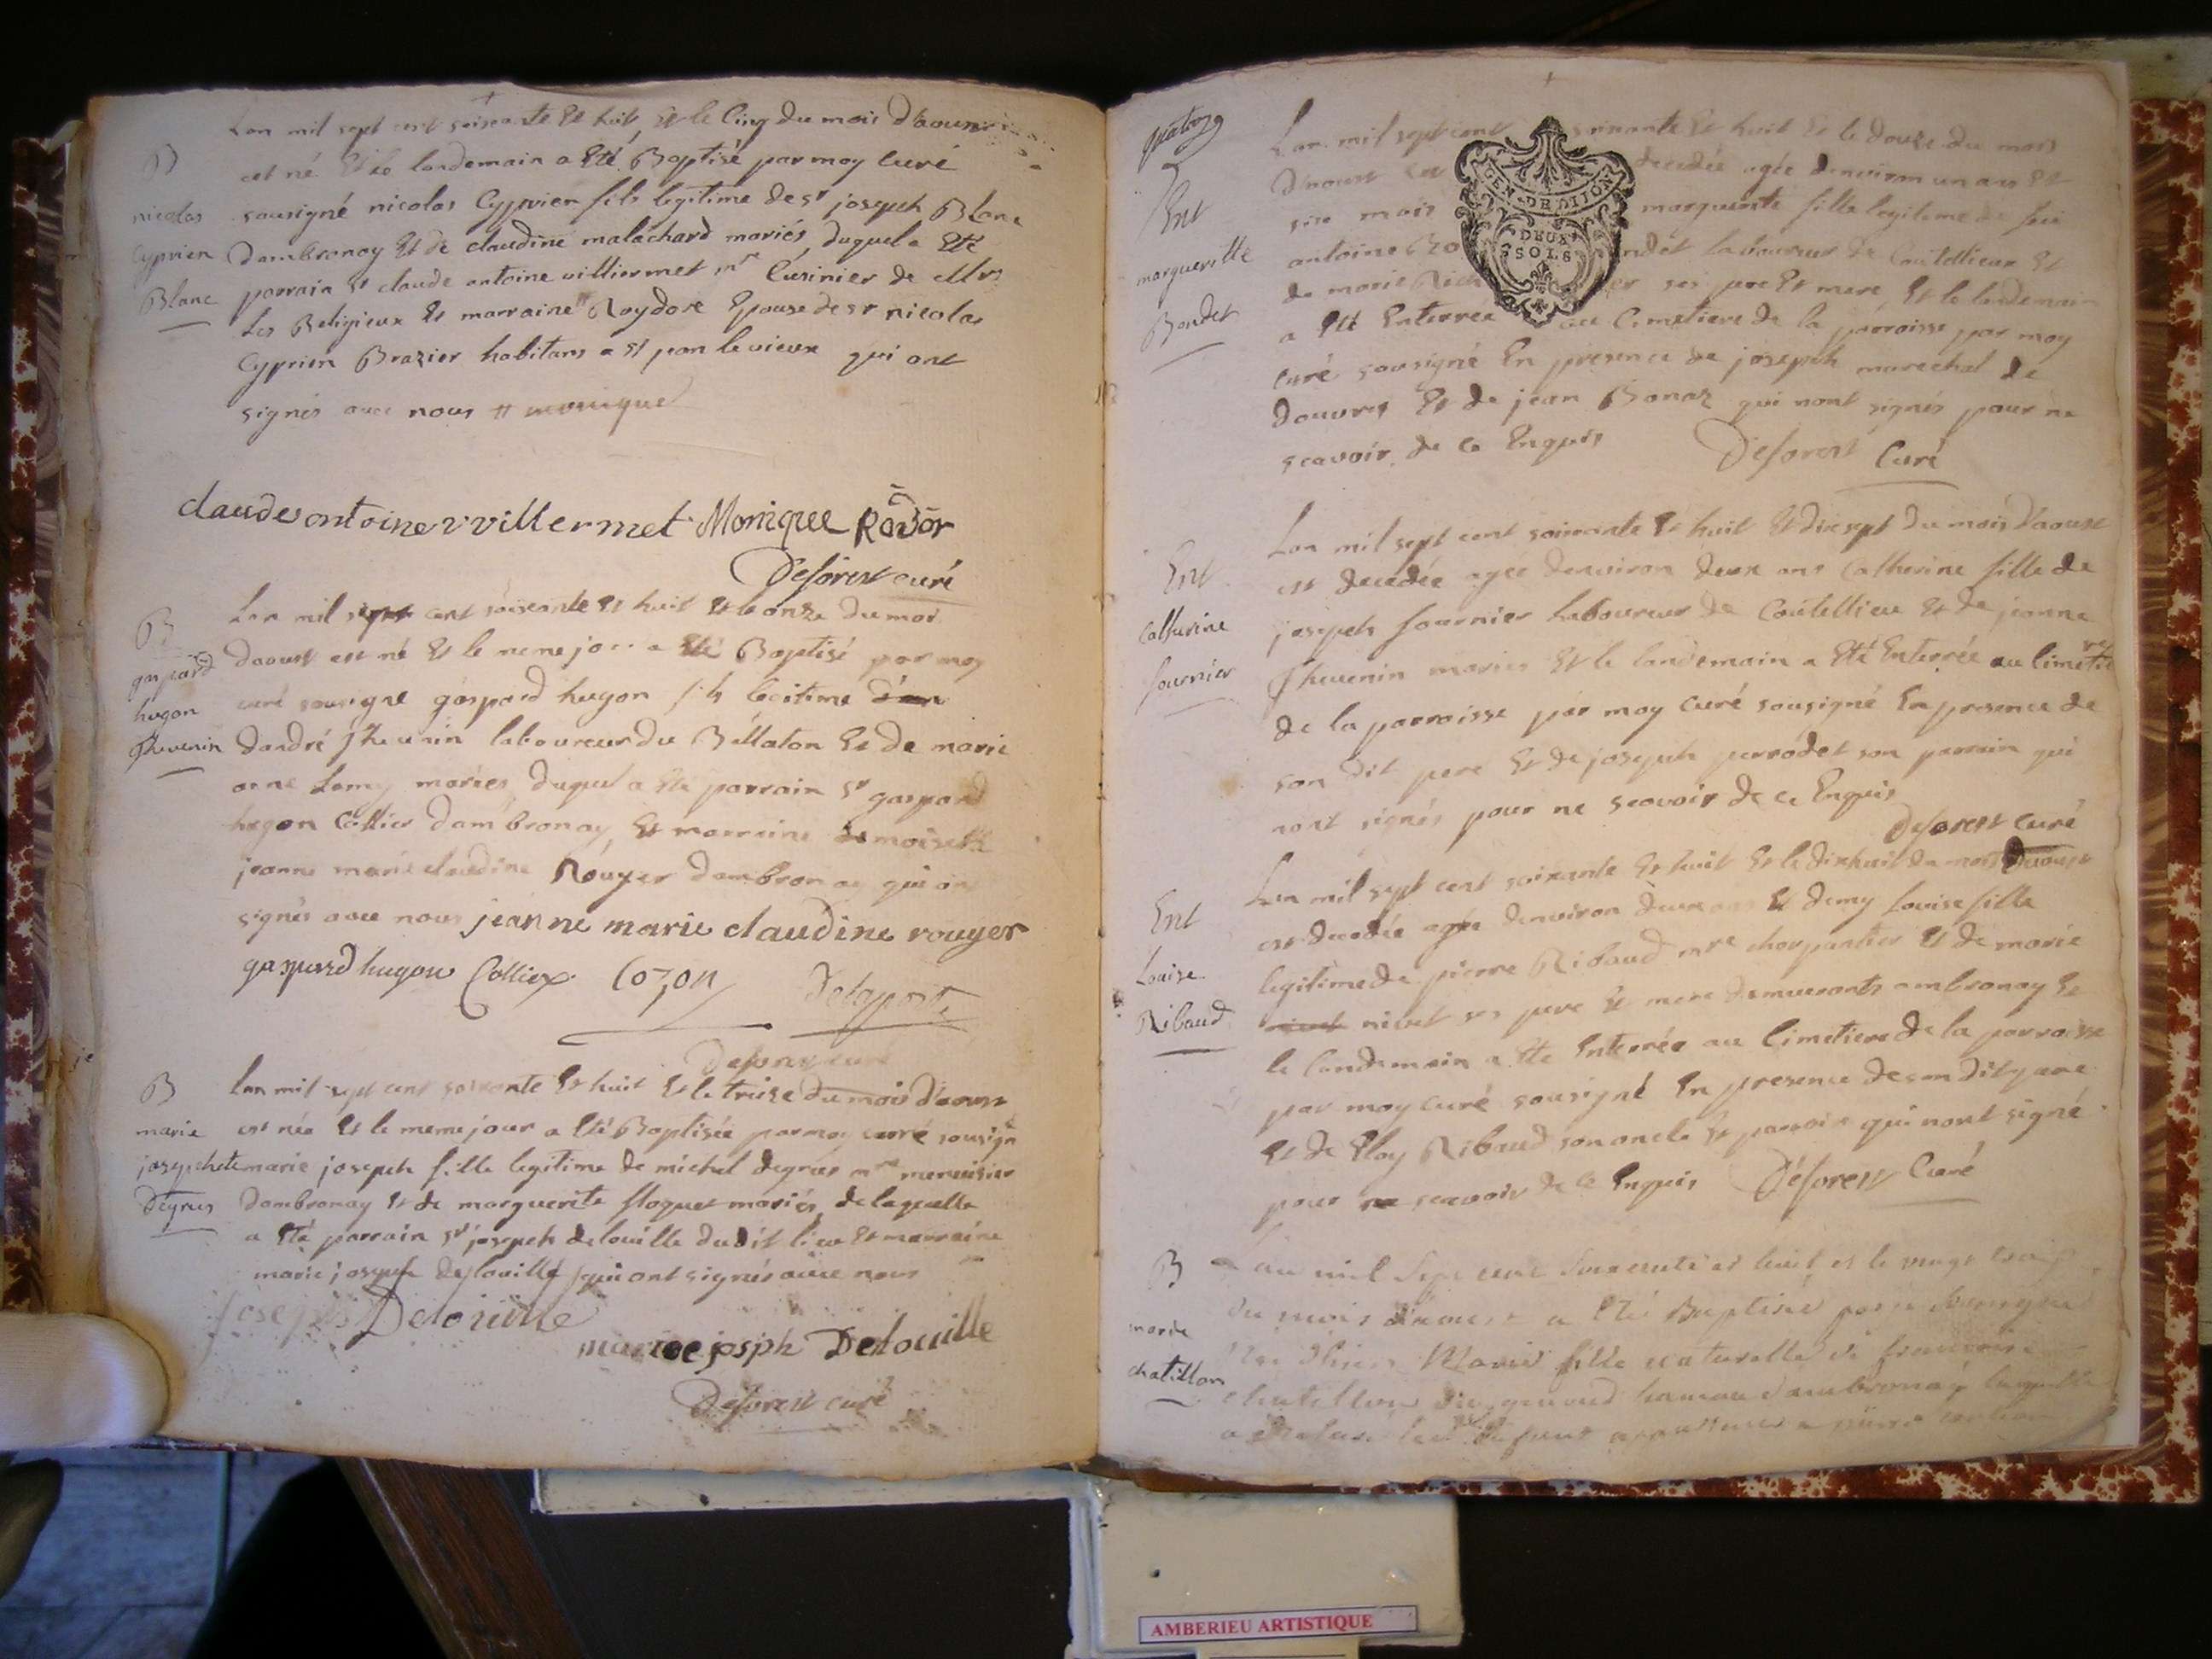 Lan mil sept cent soixante Et huit Et le Cinq du mois D'aoust
est né Et le landemain a Eté Baptisé par moy Curé
B
nicolas
Cyprien
Blanc
sousigné nicolas Cyprien fils legitime de sr joseph Blanc
Dambronay Et de claudine malachard mariés, duquel a Eté
parrain sr claude antoine villiermet mre Cuisinier de Mrs
Les Religieux Et marraine # Roydore Epouse de sr nicolas
Cyprien Brazier habitans a st jean le vieux qui ont
signés avec nous # monique
claude antoine villermet Monique Rodor
Deforest curé
B
gaspard
hugon
Thevenin
Lan mil sept cent soixante Et huit Et le onze du moi
daoust est né Et le meme jour a Eté Baptisé par moy
curé sousigné gaspard hugon fils legitime
dandré Thevenin laboureur du Bellaton Et de marie
anne Lamy mariés, duquel a Eté parrain sr gaspard
hugon Collier dambronay, Et marraine demoiselle
jeanne marie claudine Rouyer dambronay qui ont
signés avec nous jeanne marie claudine rouyer
gaspard hugon Colliex Cozon
Deforest curé
B
marie
josephete
Degrus
Lan mil sept cent soixante Et huit Et le treize du mois D'aoust
est née Et le meme jour a Eté Baptisée par moy curé sousigné
marie joseph fille legitime de michel degrus mre menuisier
Dambronay Et de marguerite floquet mariés, de laquelle
a Eté parrain sr joseph delouille dudit lieu Et marraine
marie joseph delouille qui ont signés avec nous
joseph Delouille
marie josph Delouille
Deforest curé
quatorze
Ent
margueritte
Bondet
Lan mil sept cent soixante Et huit Et le douze du mois
D'aoust est decedée agée denviron un ans Et
six mois marguerite fille legitime de feu
antoine Bondet laboureur de Coutellieux Et
de marie ses pere Et mere, Et le landemain
a Eté Enterrée au Cimetiere de la parroisse par moy
Curé sousigné En presence de joseph marechal de
douvres Et de jean Bonaz qui nont signés pour ne
scavoir de ce Enquis Deforest Curé
GEN. DE DIJON
DEUX
SSOLS
Ent
Catherine
fournier
Lan mil sept cent soixante Et huit Et dixsept du mois d'aoust
est decedée agée denviron deux ans Catherine fille de
joseph fournier laboureur de Coutellieu Et de jeanne
Thevenin mariés Et le landemain a Eté Enterrée au Cimetiere
de la parroisse par moy curé sousigné En presence de
son dit pere Et de joseph perrodet son parrain qui
nont signés pour ne scavoir de ce Enquis
Deforest curé
Ent
Louise
Ribaud
Lan mil sept cent soixante Et huit Et le dixhuit du mois Daoust
est decedée agée denviron deux ans Et demy Louise fille
legitime de pierre Ribaud mre charpantier Et de marie
nivet ses pere Et mere demeurants ambronay Et
le landemain a Eté Enterrée au Cimetiere de la parroisse
par moy curé sousigné En presence de son dit pere
Et de Eloy Ribaud son oncle Et parrain qui nont signé
pour ne scavoir de ce Enquis Deforest Curé
B
marie
chatillon
Lan mil sept cent soixante et huit et le vingt trois
du mois d'aoust a Eté Baptisée
Marie fille naturelle de francoise
chatillon hameau d'ambronay laquelle
a
AMBERIEU ARTISTIQUE